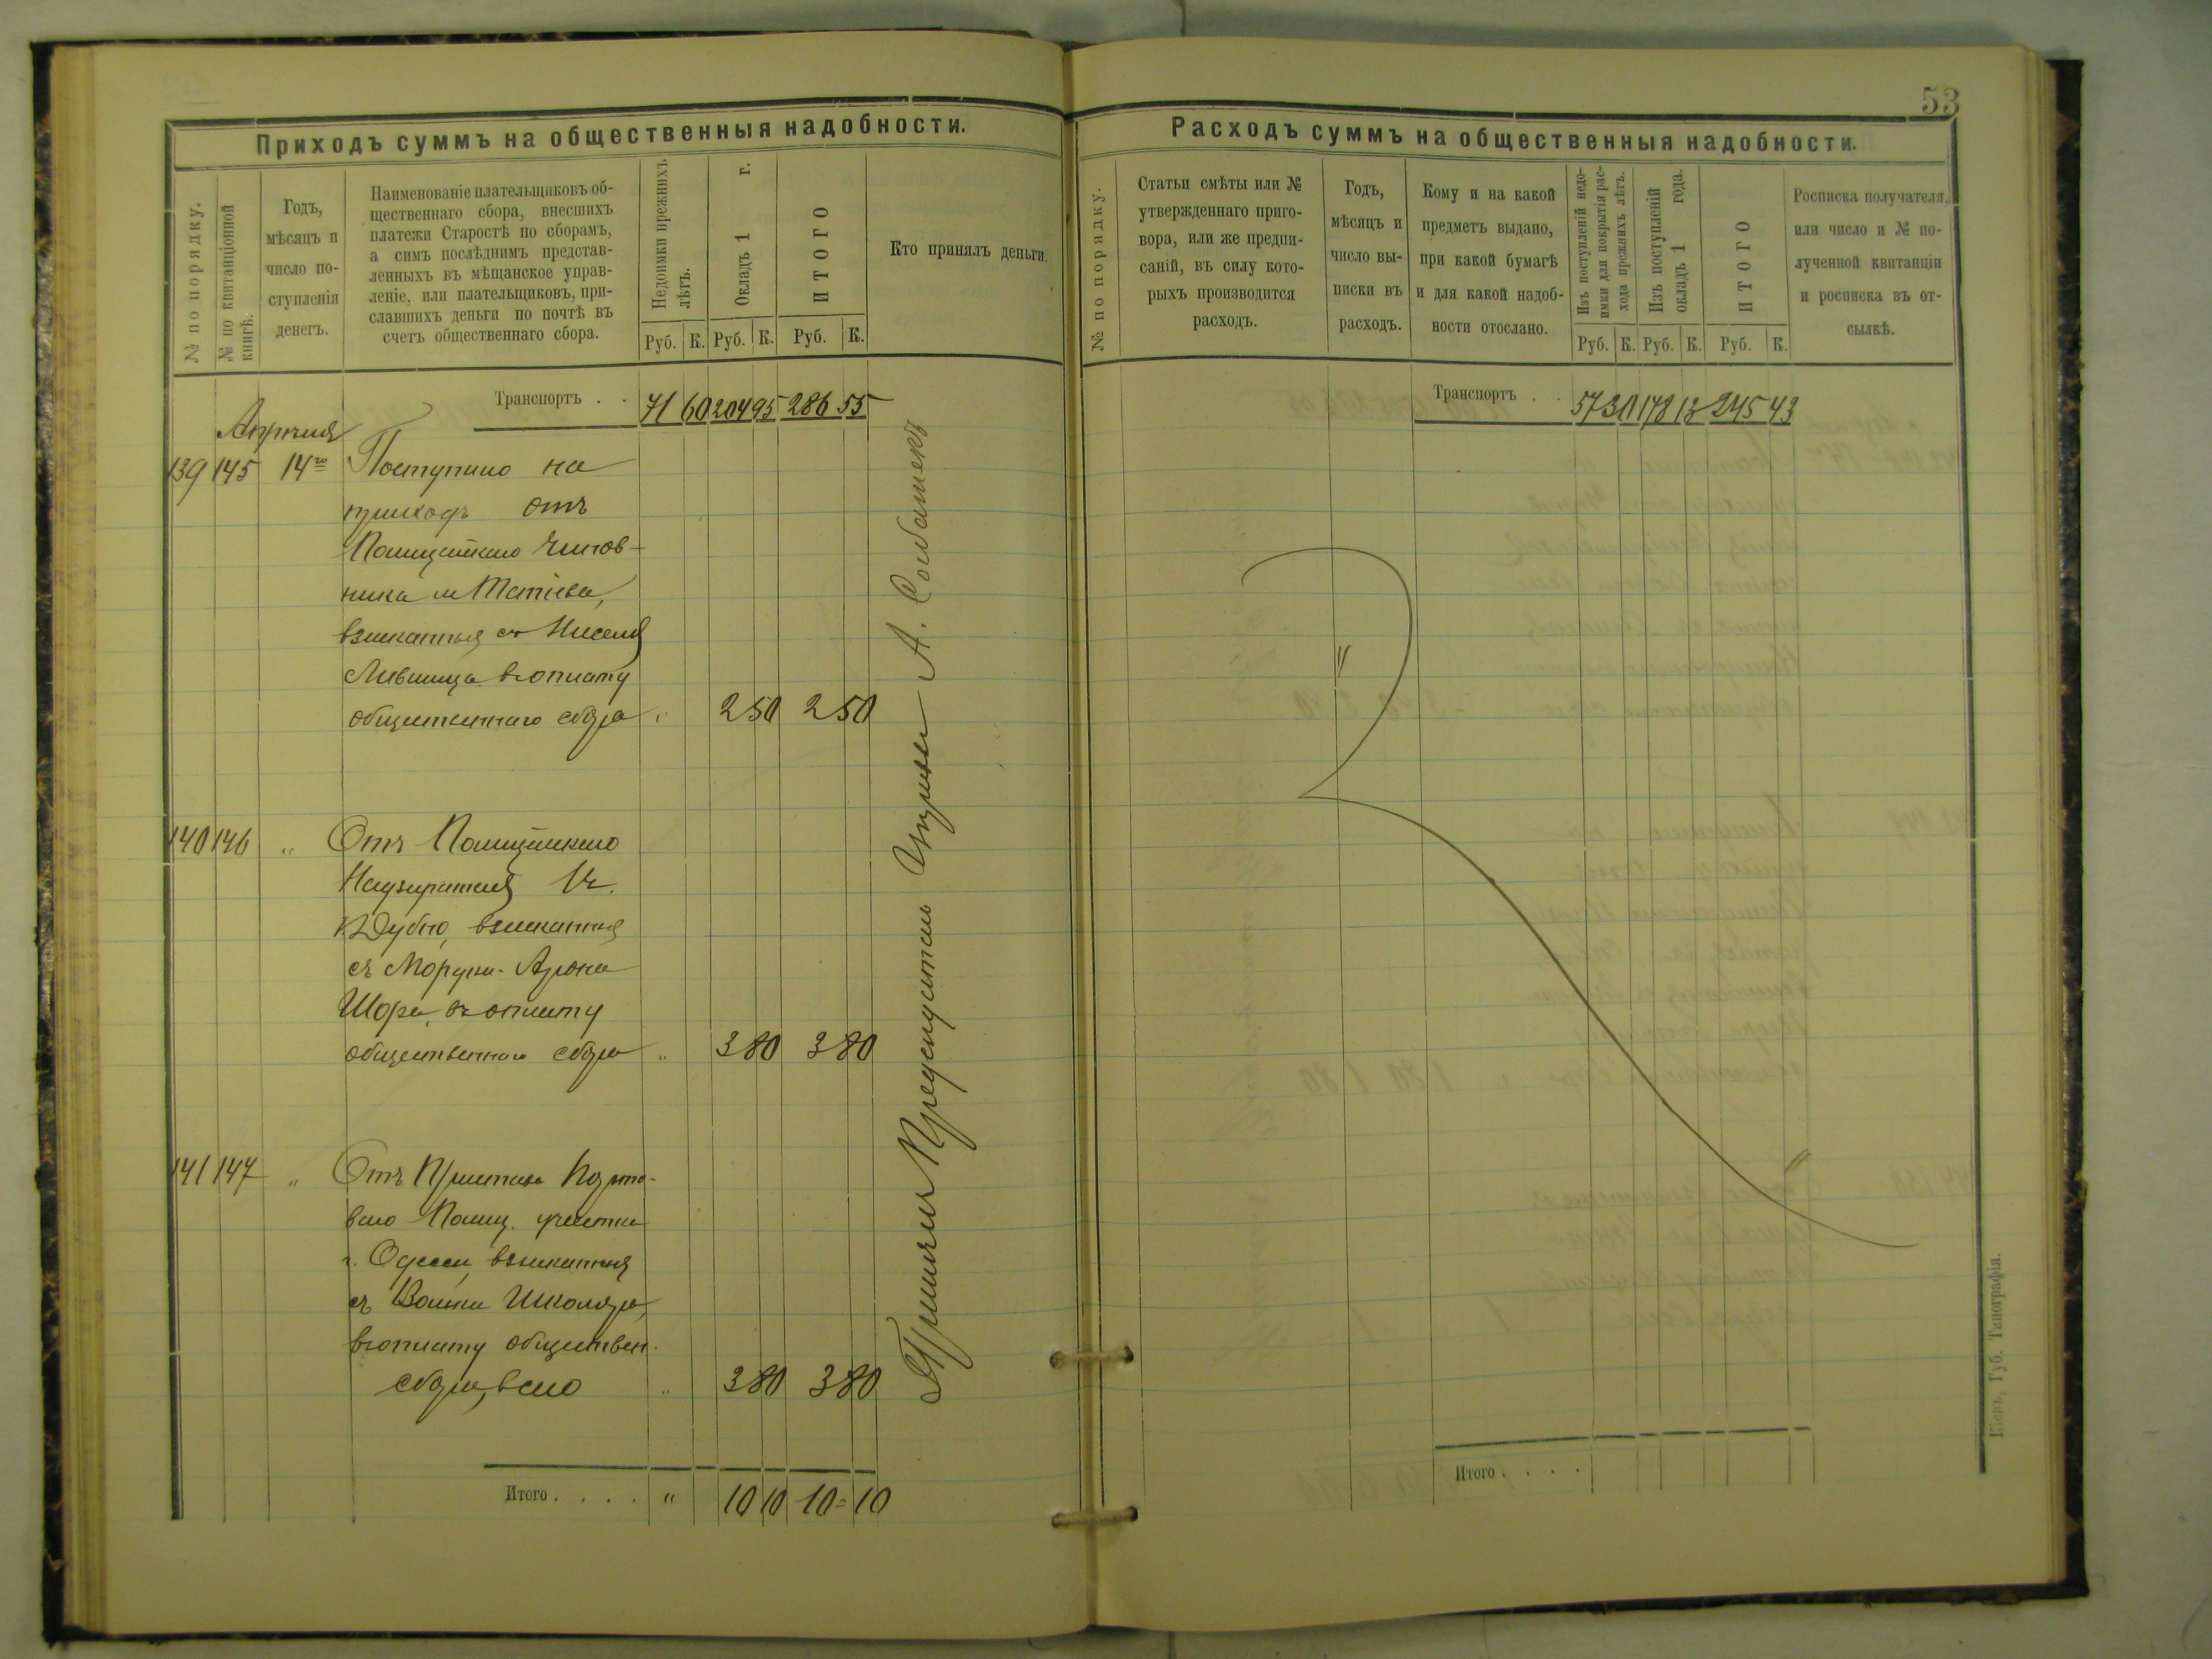 53
Приходъ суммъ на общественныя надобности.
№ по порядку.
№ по квитанціонной книгѣ.
Годъ,
мѣсяцъ и
число по-
ступленія
денегъ.
Наименованіе плательщиковъ об-
щественнаго сбора, внесшихъ
платежи Старостѣ по сборамъ,
а симъ послѣднимъ представ-
ленныхъ въ мѣщанское управ-
леніе, или плательщиковъ, при-
славшихъ деньги по почтѣ въ
счетъ общественнаго сбора.
Недоимки прежнихъ лѣтъ.
Окладъ 1 г.
ИТОГО
Руб. К. Руб. К. Руб. К.
Кто принялъ деньги.
Транспортъ . . 71 60 204 95 286 55
Апрѣля
139 145 14го Поступило на
приходъ отъ
Полицейскаго Чинов-
ника м
взысканныя съ
Лившица въ оплату
общественнаго сбора " 2 50 2 50
140 146 " Отъ Полицейскаго
Надзирателя
Дубно, взысканныя
съ Мордка-Арона
Шора, въ оплату
общественнаго сбора " 3 80 3 80
141 147 " Отъ Пристава Порто-
ваго Полиц. участка
г. Одессы, взысканныя
съ Школяра,
въ оплату обществен.
сбора, всего " 3 80 3 80
Итого . . . . " 10 10 10=10
Принялъ Предсѣдатель Управы А.
Расходъ суммъ на общественныя надобности.
№ по порядку.
Статьи смѣты или №
утвержденнаго приго-
вора, или же предпи-
саній, въ силу кото-
рыхъ производится
расходъ.
Годъ,
мѣсяцъ и
число вы-
писки въ
расходъ.
Кому и на какой
предметъ выдано,
при какой бумагѣ
и для какой надоб-
ности отослано.
Изъ поступленій недо-
имки для покрытія рас-
хода прежнихъ лѣтъ.
Изъ поступленій
окладъ 1 года.
ИТОГО
Руб. К. Руб. К. Руб. К.
Росписка получателя
или число и № по-
лученной квитанціи
и росписка въ от-
сылкѣ.
Транспортъ . . 57 30 178 13 245 43
Итого . . . .
Кіевъ, Губ. Типографія.